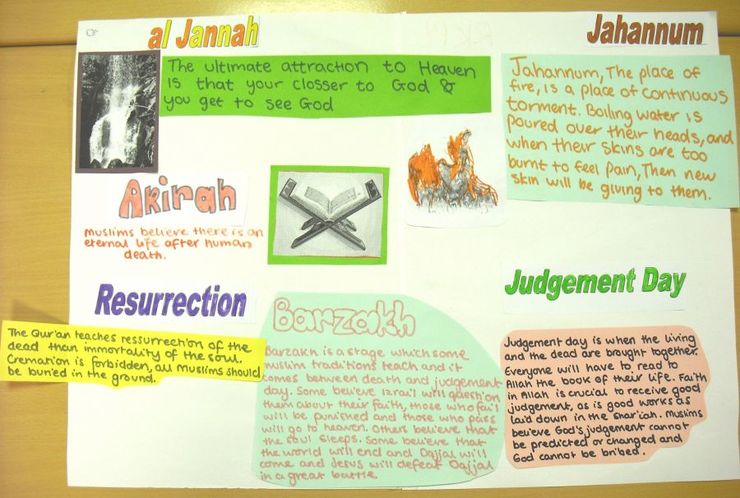 al Jannah
The ultimate attraction to Heaven
is that your closser to God &
you get to see God
Jahannum
Jahannum, The place of
fire, is a place of continuous
torment. Boiling water is
poured over their heads, and
when their skins are too
burnt to feel pain, Then new
skin will be giving to them.
Akirah
muslims believe there is an
eternal life after human
death.
Resurrection
The Qur'an teaches ressurrection of the
dead than immortality of the soul.
Cremation is forbidden, all muslims should
be buried in the ground.
Barzakh
Barzakh is a stage which some
muslim traditions teach and it
comes between death and judgement
day. Some believe Izrail will question
them about their faith, those who fail
will be punished and those who pass
will go to heaven. Others believe that
the soul sleeps. Some believe that
the world will end and Dajjal will
come and Jesus will defeat Dajjal
in a great battle.
Judgement Day
Judgement day is when the living
and the dead are brought together.
Everyone will have to read to
Allah the book of their life. Faith
in Allah is crucial to receive good
judgement, as is good works as
laid down in the Shari'ah. Muslims
believe God's judgement cannot
be predicted or changed and
God cannot be bribed.